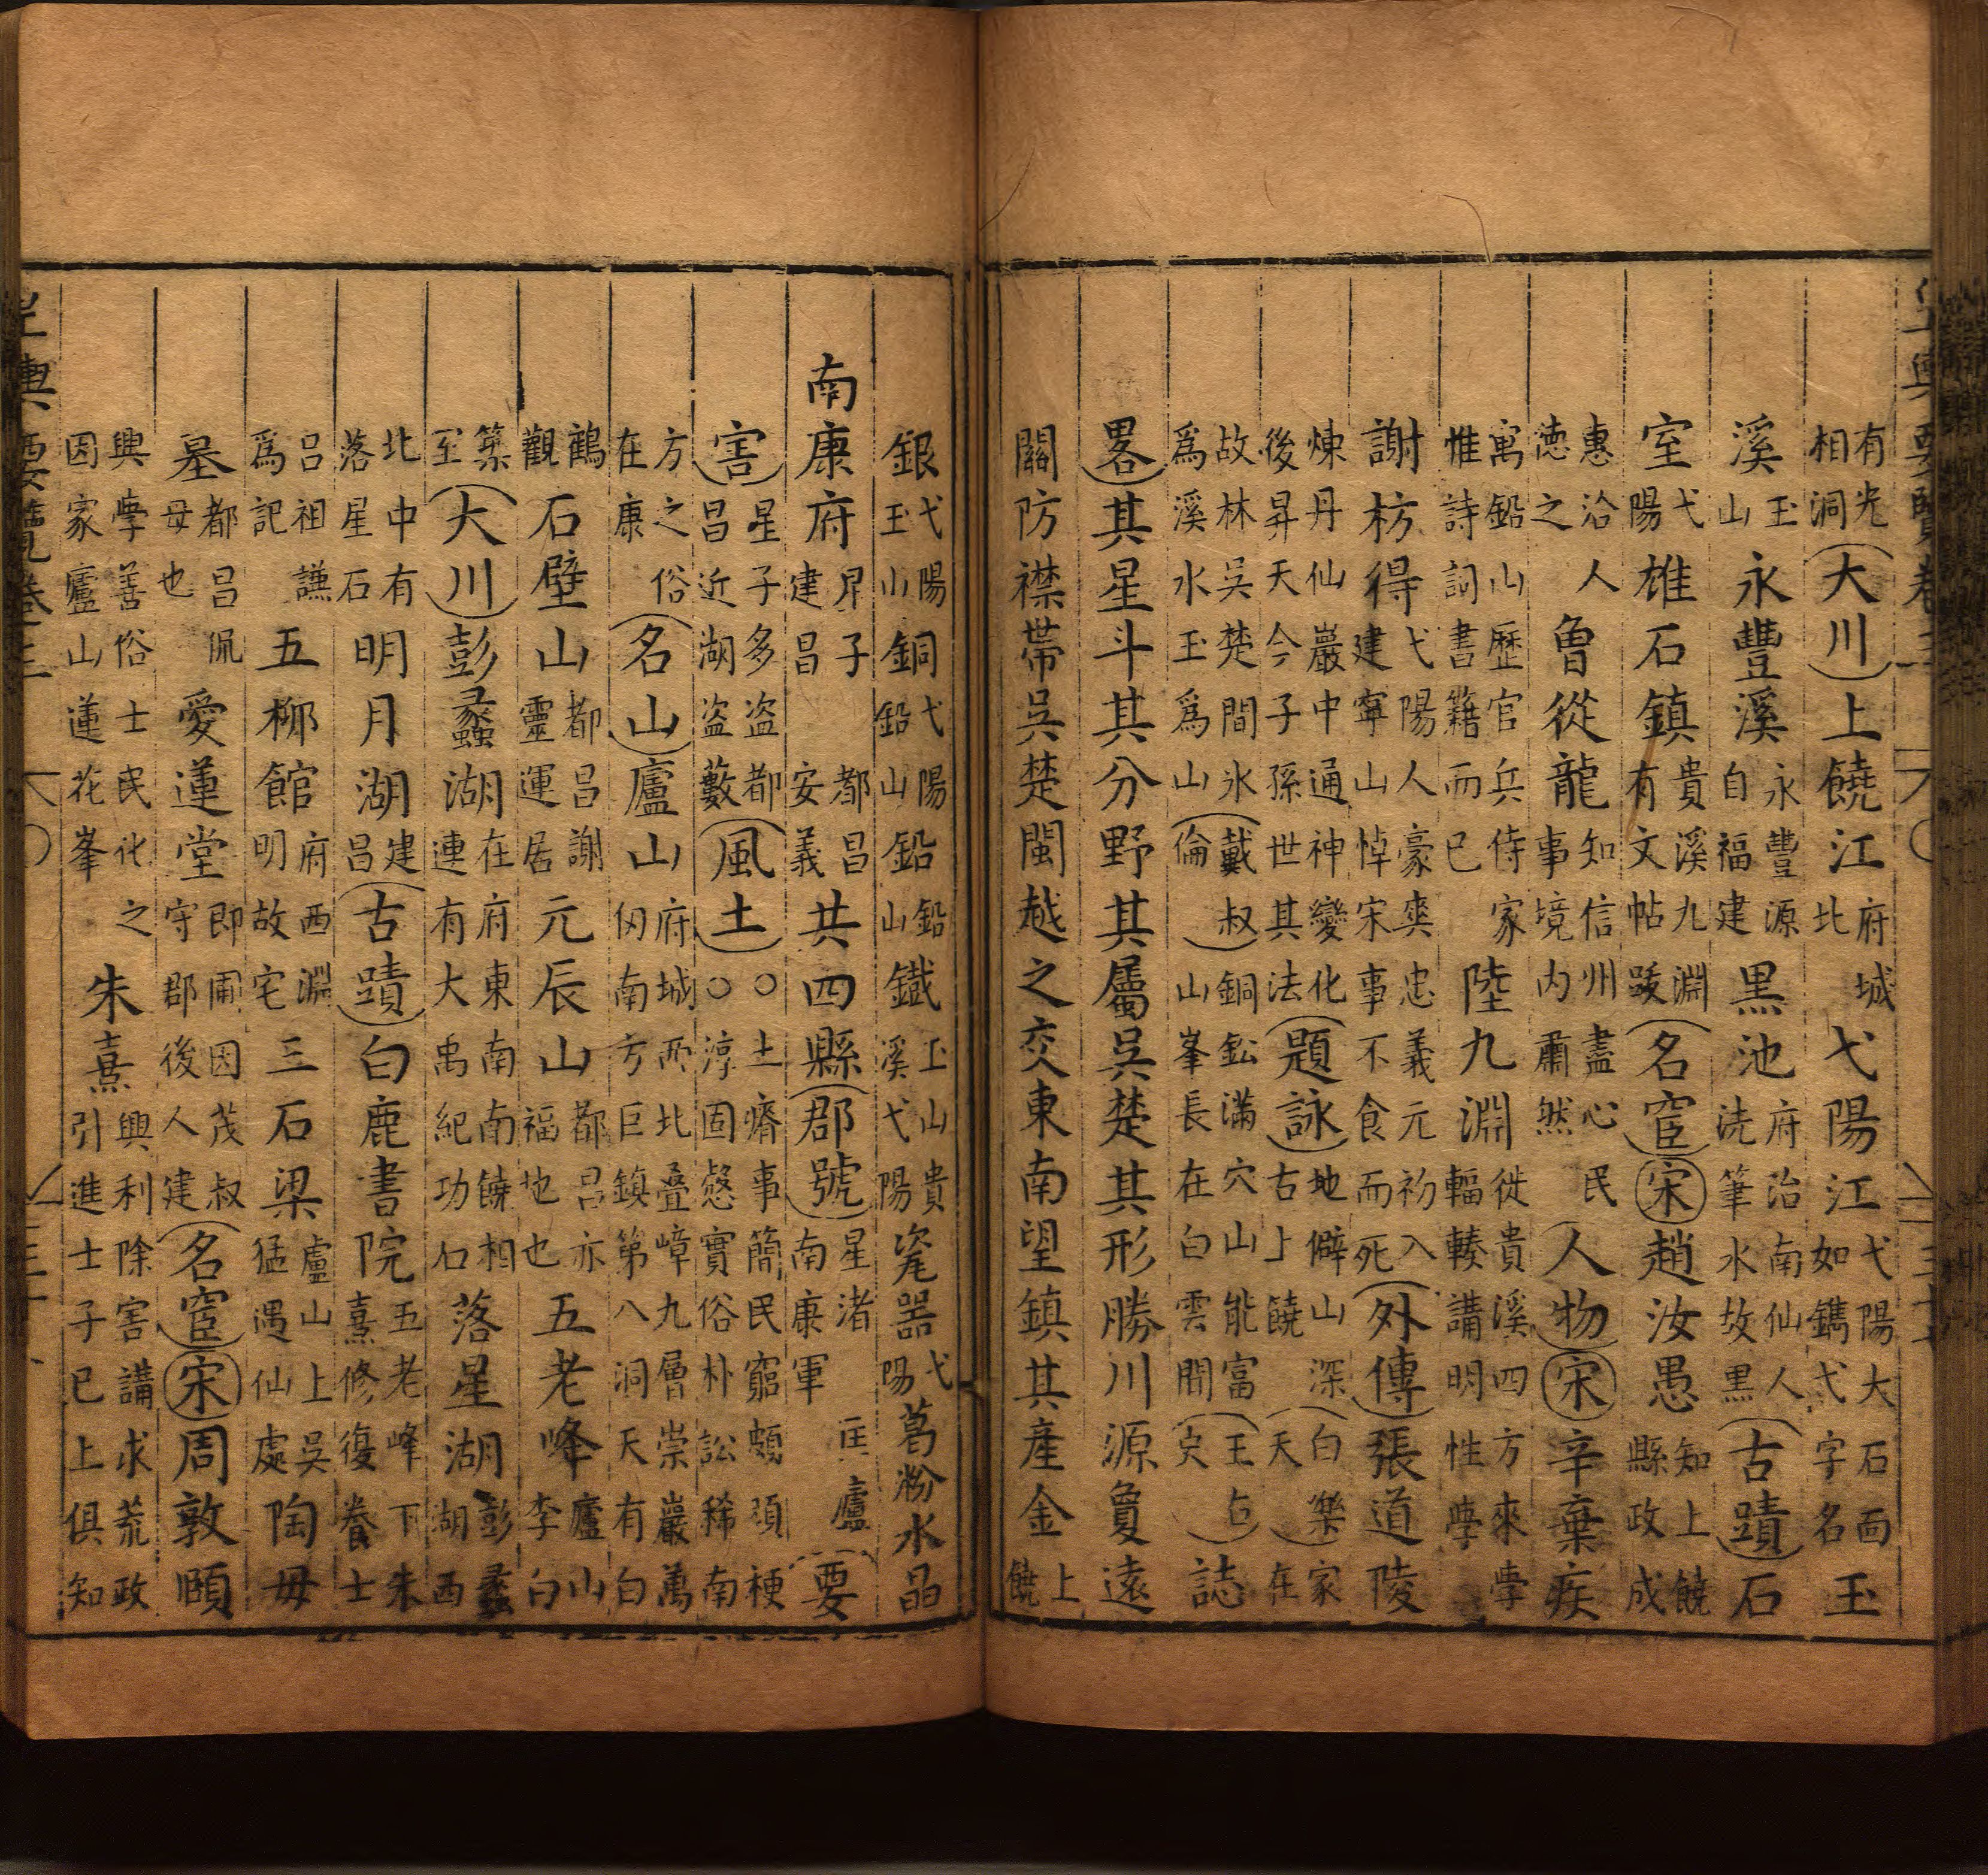 有光相洞大川上饒江府城北弋陽江弋陽大石面如鐫弋字名玉
溪玉山永豐溪永豐源自福建黑池府治南仙人洗筆水故黑古蹟石
室弋陽雄石鎮貴溪九淵有文帖踐名宦宋趙汝愚知上饒縣政成
惠洽人德之魯從龍知信州盡心民事境内肅然人物宋辛棄疾
寓鉛山歷官兵侍家惟詩詞書籍而已陸九淵徙貴溪四方來學輻輳講明性學
謝枋得弋陽人豪奕忠義元初入建寧山悼宋事不食而死外傳張道陵
煉丹仙巖中通神變化後昇天今子孫世其法題詠地僻山深古上饒白樂天家在
故林吳楚間氷爲溪水玉爲山戴叔倫銅鈆滿穴山能富山峯長在白雲間王右丞誌
畧其星斗其分野其屬吳楚其形勝川源敻遠
關防襟帶吳楚閩越之交東南望鎮其產金上饒
銀弋陽玉山銅弋陽鉛山鉛鉛山鐵玉山貴溪弋陽瓷器弋陽葛粉水晶
南康府星子建昌都昌安義共四縣郡號星渚南康軍匡廬要
害星子多盗都昌近湖盗藪風土○土瘠事簡民窮頗頑梗○淳固慤實俗朴訟稀南
方之俗在康名山廬山府城西北疊嶂九層崇巖萬仞南方巨鎮第八洞天有白
鶴觀石壁山都昌謝靈運居元辰山都昌亦福地也五老峰廬山李白
築至大川彭蠡湖在府東南南饒相連有大禹紀功石落星湖彭蠡湖西
北中有落星石明月湖建昌古蹟白鹿書院五老峰下朱熹修復養士
呂祖謙爲記五柳館府西淵明故宅三石梁廬山上吳猛遇仙處陶母
墓都昌侃母也愛蓮堂即圃因茂叔守郡後人建名宦宋周敦頤
興學善俗士民化之因家廬山蓮花峯朱熹興利除害講求荒政引進士子已上俱知
輿要覽卷三